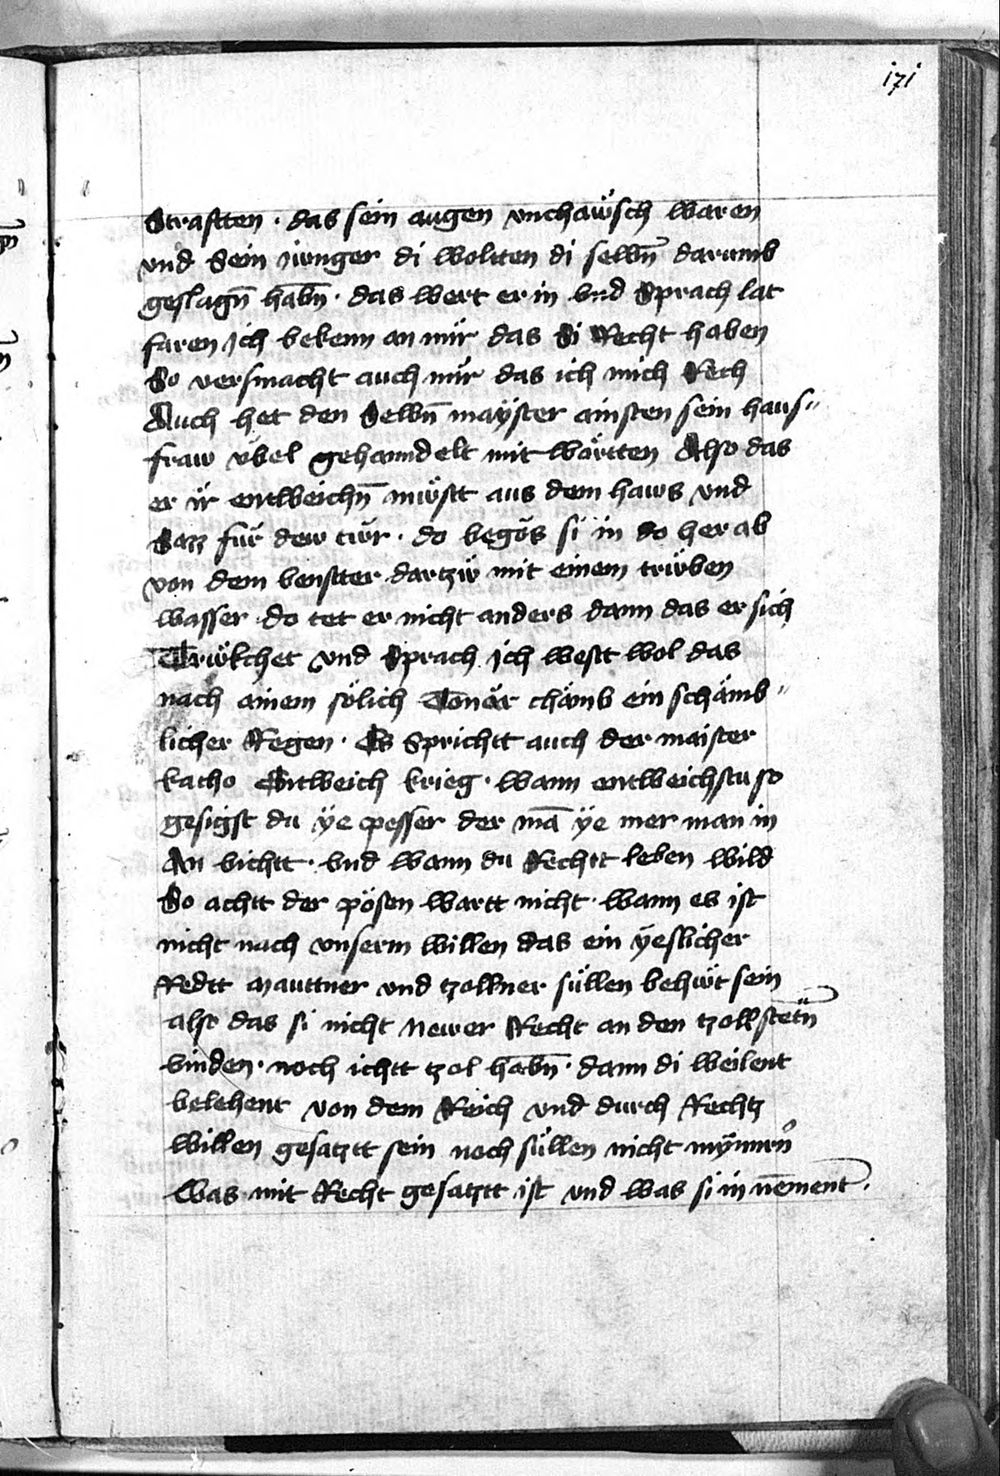 171
Strafften · das sein augen vnchaẅsch waren
vnd Sein iunger di wolten di selbn̄ darumb
geslagn̄ habn̄ · das wert er in vnd Sprach lat
faren Ich bekenn an mir das Si Recht haben
So versmacht auch mir das ich mich Rech
Auch het den Selbn̄ maÿster ainsten sein haus〃
fraw vbel gehanndelt mit wörtten Also das
er ir entweichn̄ müstt aus dem haws vnd
Sazz für dew tür · do begös si in do her ab
von dem venstter dartzü mit einem trüben
wasser do tet er nicht anders dann das er sich
Trükchet vnd Sprach Ich westt wol das
nach ainem sölich Donär chämb ein schämb〃
licher Regen · Es Sprichtt auch der maister
katho Entweich krieg · wann entweichstu so
gesigst du ÿe pesser der mā ÿe mer man in
An vichtt · vnd wann du Rechtt leben wild
So achtt der pösen wartt nicht · wann es ist
nicht nach vnserm willen das ein ÿeslicher
Redtt Mauttner vnd tzollner süllen behüt sein
also das si nicht Newer Recht an den tzollstetn̄
vinden · noch ichtt tzol habn̄ · dann di weilent
belehent von dem Reich vnd durch Rechtz
willen gesatztt sein noch süllen nicht mÿnnrn
Was mit Recht gesatztt ist vnd was si in nēment ·